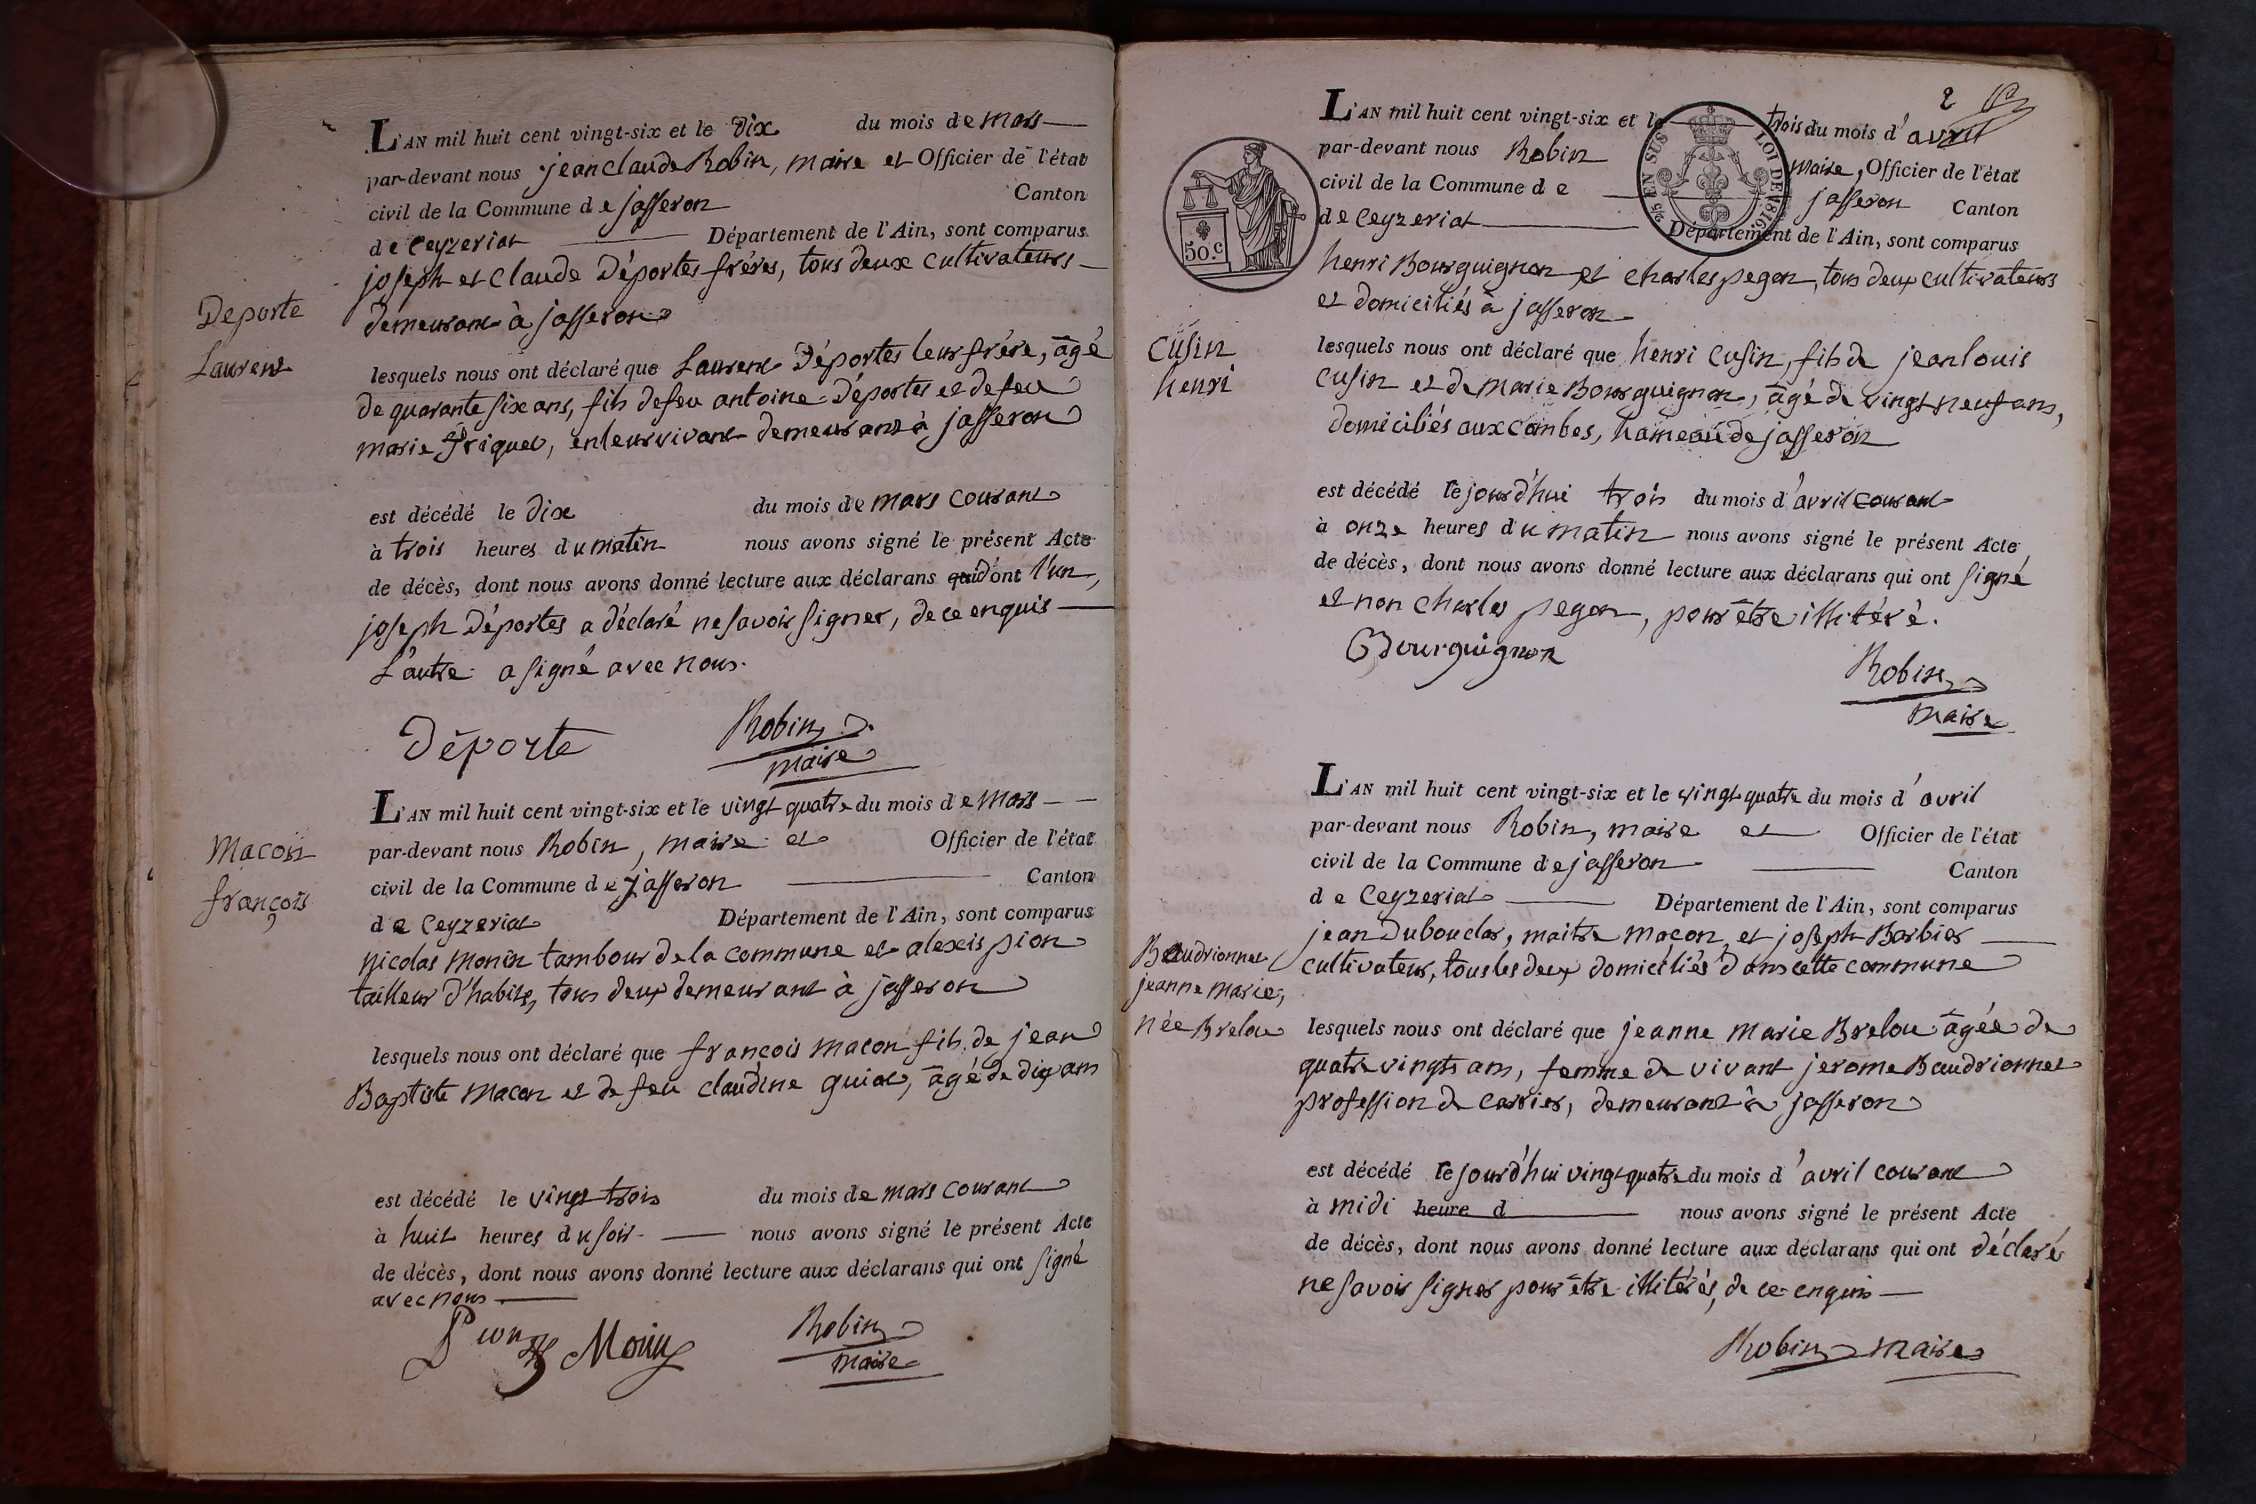 Deporte
Laurent
L'AN mil huit cent vingt-six et le dix du mois de mars
par-devant nous jean claude Robin, maire et Officier de l'état
civil de la Commune de jasseron Canton
de Ceyzeriat Département de l'Ain, sont comparus
joseph et claude Déportes frères, tous deux cultivateurs
demeurant à jasseron
lesquels nous ont déclaré que Laurent Déportes leur frère, âgé
de quarante six ans, fils de feu antoine Déportes et de feu
marie friquet, en leur vivant demeurant à jasseron
est décédé le dix du mois de mars courant
à trois heures du matin nous avons signé le présent Acte
de décès, dont nous avons donné lecture aux déclarans qui dont l'un,
joseph Déportes a déclaré ne savoir signer, de ce enquis
L'autre a signé avec nous.
Déporte Robin
maire
Macon
françois
L'AN mil huit cent vingt-six et le vingt quatre du mois de mars
par-devant nous Robin, maire et Officier de l'état
civil de la Commune de jasseron Canton
de Ceyzeriat Département de l'Ain, sont comparus
nicolas monin tambour de la commune et alexis pion
tailleur d'habits, tous deux demeurant à jasseron
lesquels nous ont déclaré que françois macon fils de jean
Baptiste macon et de feu claudine guiat, âgé de dix ans
est décédé le vingt trois du mois de mars courant
à huit heures du soir nous avons signé le présent Acte
de décès, dont nous avons donné lecture aux déclarans qui ont signé
avec nous
Pion Monin Robin
maire
2
L'AN mil huit cent vingt-six et le trois du mois d'avril
par-devant nous Robin maire, Officier de l'état
civil de la Commune de jasseron Canton
de Ceyzeriat Département de l'Ain, sont comparus
50.c
2/5 EN SUS LOI DE 1816
henri Bourguignon et charles pegon, tous deux cultivateurs
et domiciliés à jasseron
Cusin
henri
lesquels nous ont déclaré que henri Cusin, fils de jean louis
Cusin et de marie Bourguignon, âgé de vingt neuf ans,
domiciliés aux combes, hameau de jasseron
est décédé le jourd'hui trois du mois d'avril courant
à onze heures du matin nous avons signé le présent Acte
de décès, dont nous avons donné lecture aux déclarans qui ont signé
et non charles pegon, pour être illitéré.
Bourguignon
Robin
maire
L'AN mil huit cent vingt-six et le vingt quatre du mois d'avril
par-devant nous Robin, maire et Officier de l'état
civil de la Commune de jasseron Canton
de Ceyzeriat Département de l'Ain, sont comparus
jean Dubouclar, maitre macon, et joseph Barbier
cultivateur, tous les deux domiciliés dans cette commune
Baudrionnet
jeanne marie,
née Brelou
lesquels nous ont déclaré que jeanne marie Brelou âgée de
quatre vingts ans, femme de vivant jerome Baudrionnet
profession de carrier, demeurant à jasseron
est décédé le jourd'hui vingt quatre du mois d'avril courant
à midi heure d nous avons signé le présent Acte
de décès, dont nous avons donné lecture aux déclarans qui ont déclarés
ne savoir signer pour être illitérés, de ce enquis
Robin maire